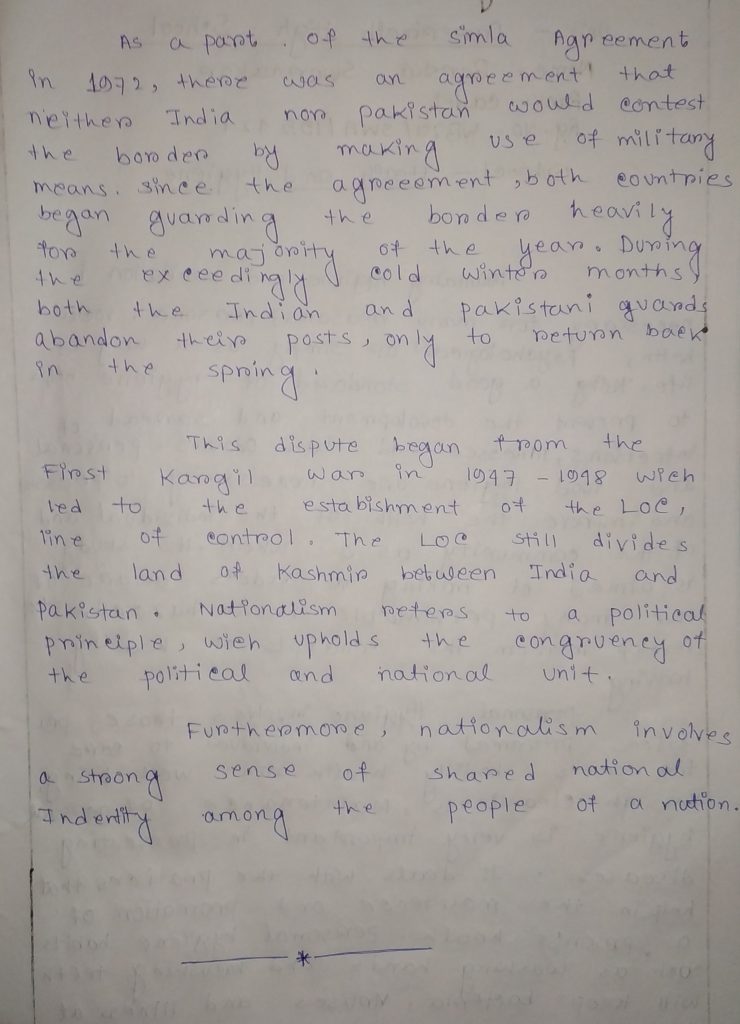 As a part . of the simla Agreement
in 1972, there was an agreement that
neither India nor pakistan would contest
the border by making use of military
means. since the agreeement , both countries
began guarding the border heavily
for the majority of the year. During
the exceedingly cold winter months,
both the Indian and pakistani guards
abandon their posts, only to return back
in the spring.
This dispute began from the
First Kargil war in 1947 - 1948 wich
led to the estabishment of the LOC,
line of control. The LOC still divides
the land of Kashmir between India and
pakistan. Nationalism refers to a political
principle, wich upholds the congruency of
the political and national unit.
Furthermore, nationalism involves
a strong sense of shared national
Indentity among the people of a nation.